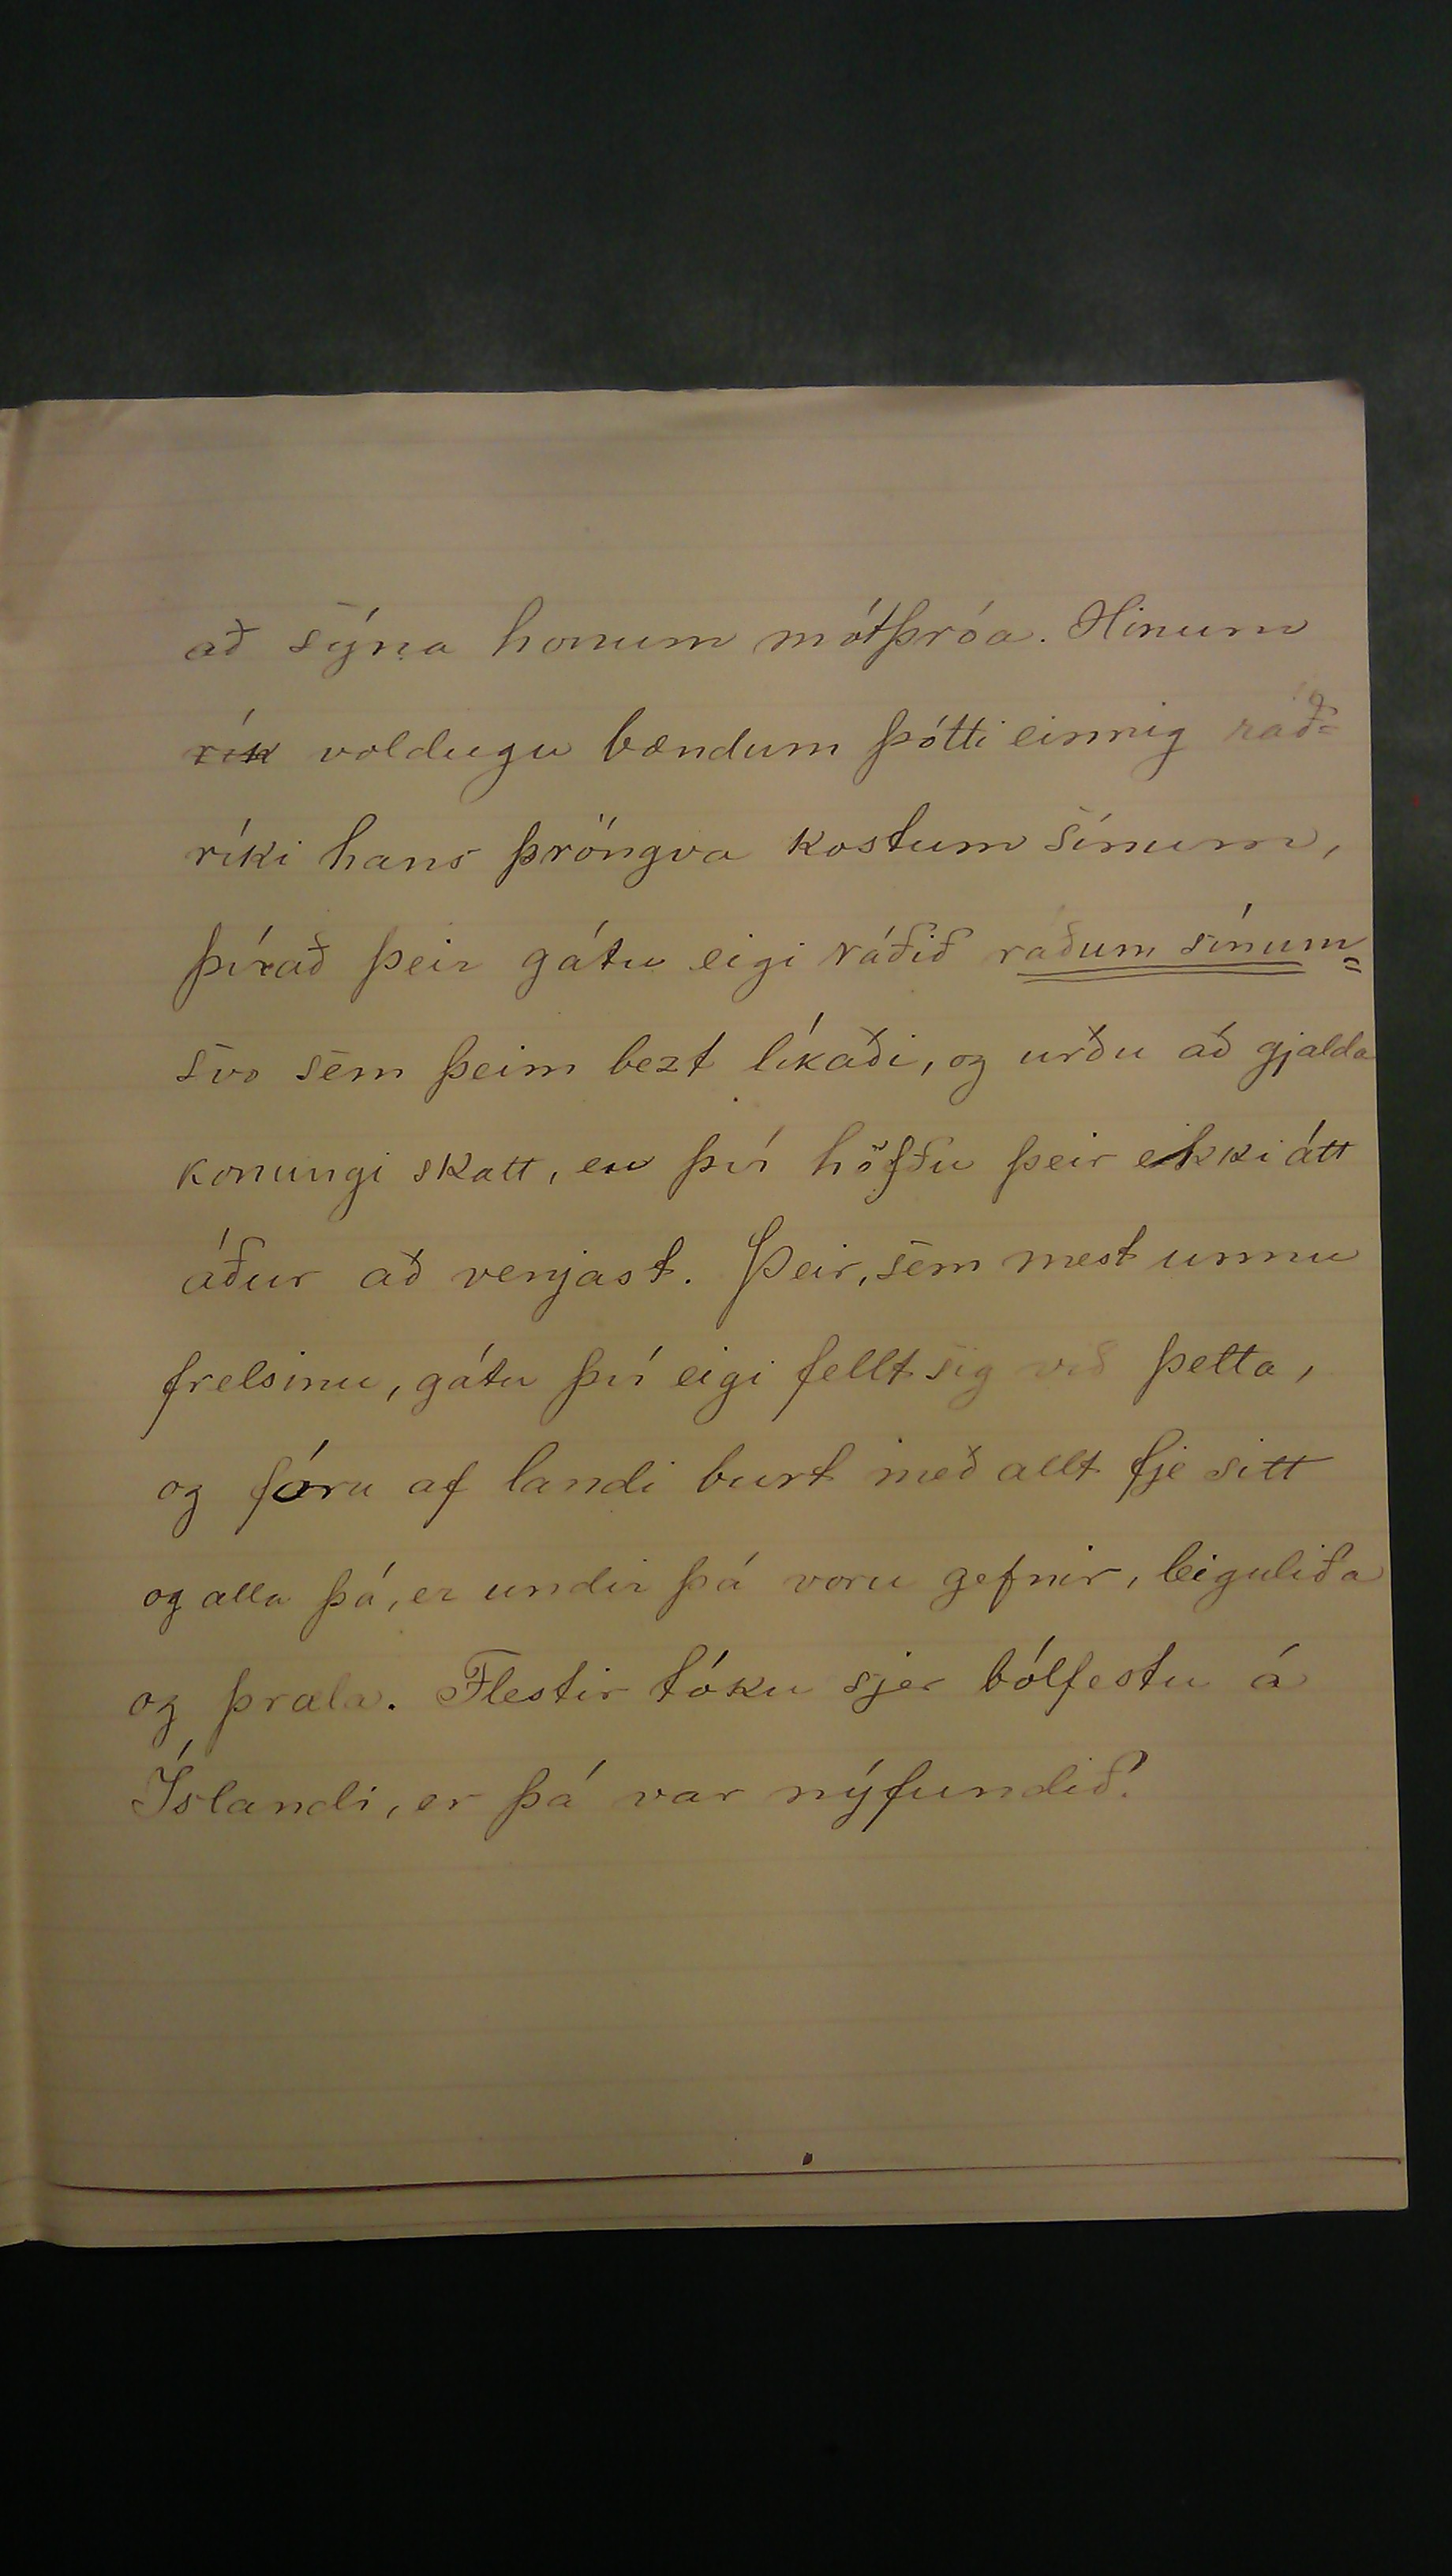 að sýna honum mótþróa. Hinum
rík voldugu bændum þótti einnig ráð=
ríki hans þröngva kostum sínum,
þírað þeir gátu eigi ráðið ráðum sínum=
svo sem þeim bezt líkaði, og urðu að gjalda
konungi skatt, en því höfðu þeir ekki átt
áður að venjast. Þeir, sem mest unnu
frelsinu, gátu því eigi fellt sig við þetta,
og fóru af landi burt með allt fje sitt
og alla þá, er undir þá voru gefnir, leiguliða
og þræla. Flestir tóku sjer bólfestu á
Íslandi, er þá var nýfundið.